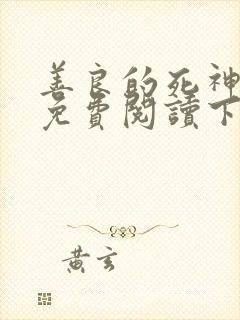 善良的死神
免費閱讀下
黃玄